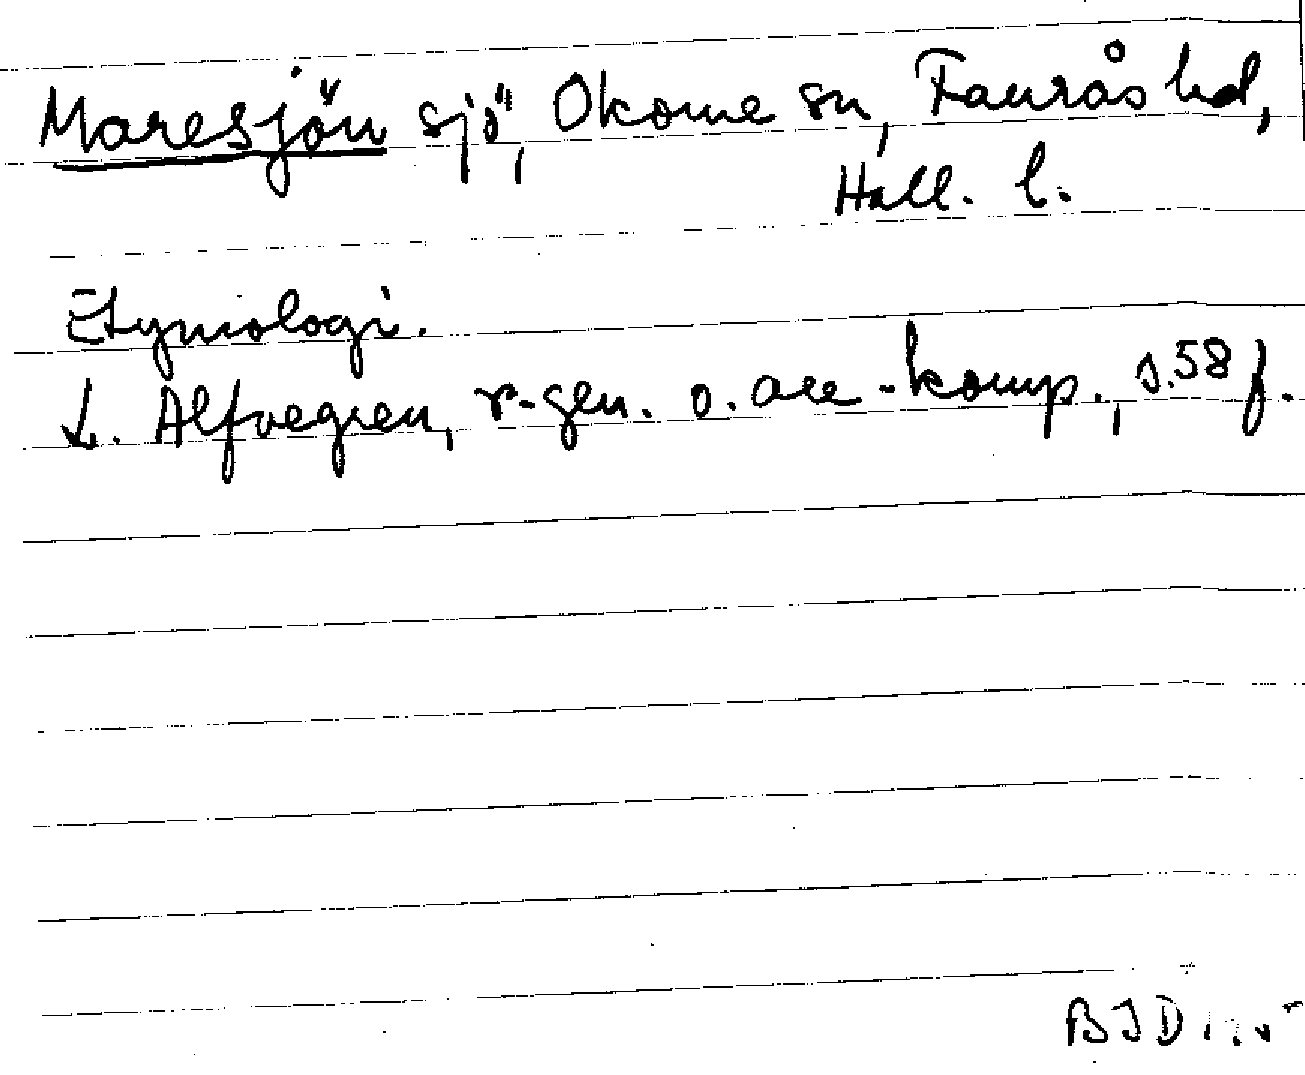 Maresjön sjö, Okome sn, Faurås hd,
Hall. l.
Etymologi.
L. Alfvegren, r-gen. o. are-komp., s. 58 f.
BJD